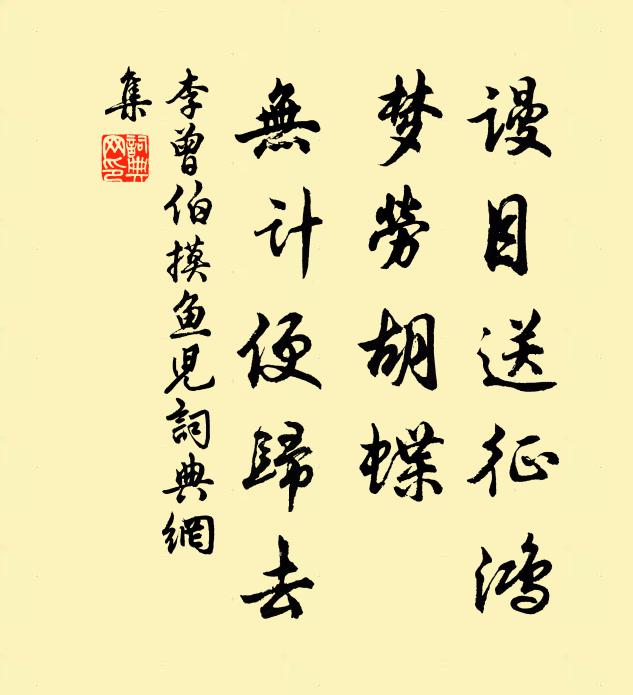 谩目送征鸿
梦劳胡蝶
無计便歸去
李曾伯摸鱼児詞典網
集
詞典网印